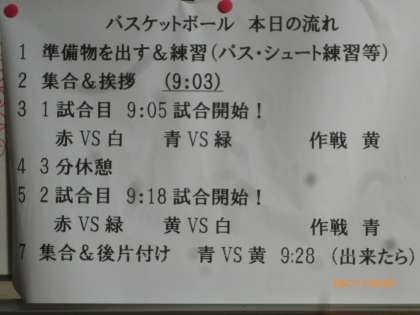 バスケットボール 本日の流れ
1 準備物を出す&練習(パス・シュート練習等)
2 集合&挨拶 (9:03)
3 1試合目 9:05試合開始!
赤VS白 青VS緑 作戦 黄
4 3分休憩
5 2試合目 9:18試合開始!
赤VS緑 黄VS白 作戦 青
7 集合&後片付け 青VS黄 9:28 (出来たら)